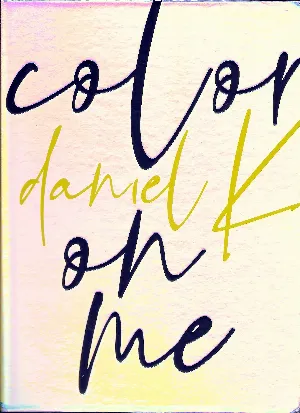 color
daniel K
on
me